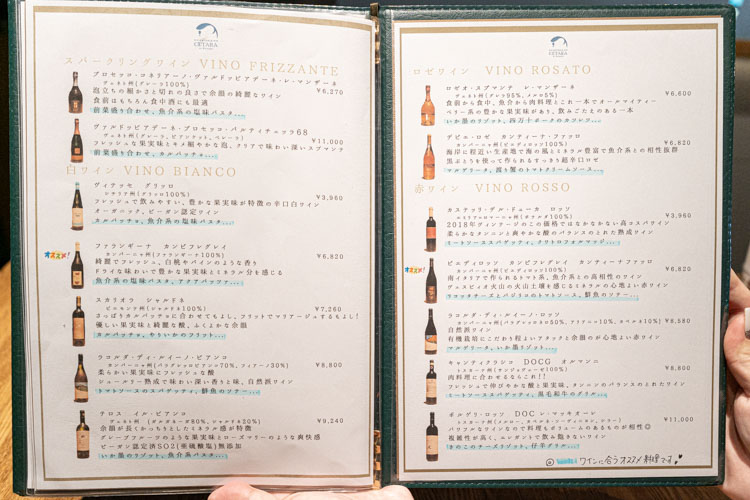 CETARA
スパークリングワイン VINO FRIZZANTE
プロセッコ・コネリアーノ・ヴァルドッビアデーネ・レ・マンザーネ
ヴェネト州(グレーラ100%)
¥6,270
泡立ちの細かさと切れの良さで余韻の綺麗なワイン
食前はもちろん食中酒にも最適
前菜盛り合わせ、魚介系の塩味パスタ...
ヴァルドッビアデーネ・プロセッコ・バルナティチェッラ68
¥11,000
フレッシュな果実味とキメ細やかな泡、クリアで味わい深いスプマンテ
前菜盛り合わせ、カルパッチョ...
白ワイン VINO BIANCO
ヴィテッセ グリッロ
シチリア州(グリッロ100%)
¥3,960
フレッシュで飲みやすい、豊かな果実味が特徴の辛口白ワイン
オーガニック、ビーガン認定ワイン
カルパッチョ、魚介系の塩味パスタ...
オススメ!
ファランギーナ カンピフレグレイ
カンパーニャ州(ファランギーナ100%)
¥6,820
綺麗でフレッシュ、白桃やパインのような香り
ドライな味わいで豊かな果実味とミネラル分を感じる
魚介系の塩味パスタ、アクアパッツァ...
スカリオラ シャルドネ
ピエモンテ州(シャルドネ100%)
¥7,260
さっぱりカルパッチョに合わせてもよし、フリットでマリアージュするもよし!
優しい果実味と綺麗な酸、ふくよかな余韻
カルパッチョ、やりいかのフリット...
ラコルダ・ディ・ルイーノ・ビアンコ
¥8,800
柔らかい果実味にフレッシュな酸
ジューシー熟成で味わい深い香りと味、自然派ワイン
トマトソースのスパゲッティ、鮮魚のソテー...
テロス イル・ビアンコ
ヴェネト州 (ガルガネーガ80%、シャルドネ20%)
¥9,240
余韻が長くかっちりとしたミネラル感が特徴
グレープフルーツのような果実味とローズマリーのような爽快感
ビーガン認定済SO2(亜硫酸塩)無添加
いか墨のリゾット、魚介系の塩味パスタ...
CETARA
ロゼワイン VINO ROSATO
ロゼオ・スプマンテ レ・マンザーネ
ヴェネト州(グレラ95%、メルロ5%)
¥6,600
食前から食中、魚介から肉料理とこれ一本でオールマイティー
ベリー系の豊かな果実味があり、飲みごたえのある一本
いか墨のリゾット、四万十ポークのカツレツ...
デビル・ロゼ カンティーナ・ファッロ
¥6,820
海岸に程近い生産地で海の風とミネラル豊富で魚介系との相性抜群
黒ぶどうを使って作られるすっきり超辛口ロゼ
マルゲリータ、渡り蟹のトマトクリームソース...
赤ワイン VINO ROSSO
カステッリ・デル・ドゥーカ ロッソ
¥3,960
2018年ヴィンテージのこの価格ではなかなかない高コスパワイン
柔らかなタンニンと爽やかな酸のバランスのとれた熟成ワイン
ミートソーススパゲッティ、クワトロフォルマッジ...
オススメ!
ピエディロッソ カンピフレグレイ カンティーナファッロ
カンパーニャ州(ピエディロッソ100%)
¥6,820
南イタリアで作られるトマト系、魚介系との高相性のワイン
ヴェスビオ火山の火山土壌を感じるミネラルの心地よい赤ワイン
リコッタチーズとバジリコのトマトソース、鮮魚のソテー...
ラコルダ・ディ・ルイーノ・ロッソ
¥8,580
自然派ワイン
有機栽培にこだわり程よいアタックと余韻の心地よい赤ワイン
マルゲリータ、いか墨リゾット...
キャンティクラシコ DOCG オルマンニ
トスカーナ州(サンジョベーゼ100%)
¥8,800
肉料理に合わせるならこれ!!
フレッシュで伸びやかな酸と果実味、タンニンのバランスのとれたワイン
ミートソーススパゲッティ、黒毛和牛のグリル...
ボルゲリ・ロッソ DOC レ・マッキオーレ
¥11,000
パワフルなワインなので料理もボリュームのあるものが相性◎
複雑性が高く、エレガントで飲み飽きないワイン
きのこのチーズリゾット、仔羊グリル...
ワインに合うオススメ料理です♥